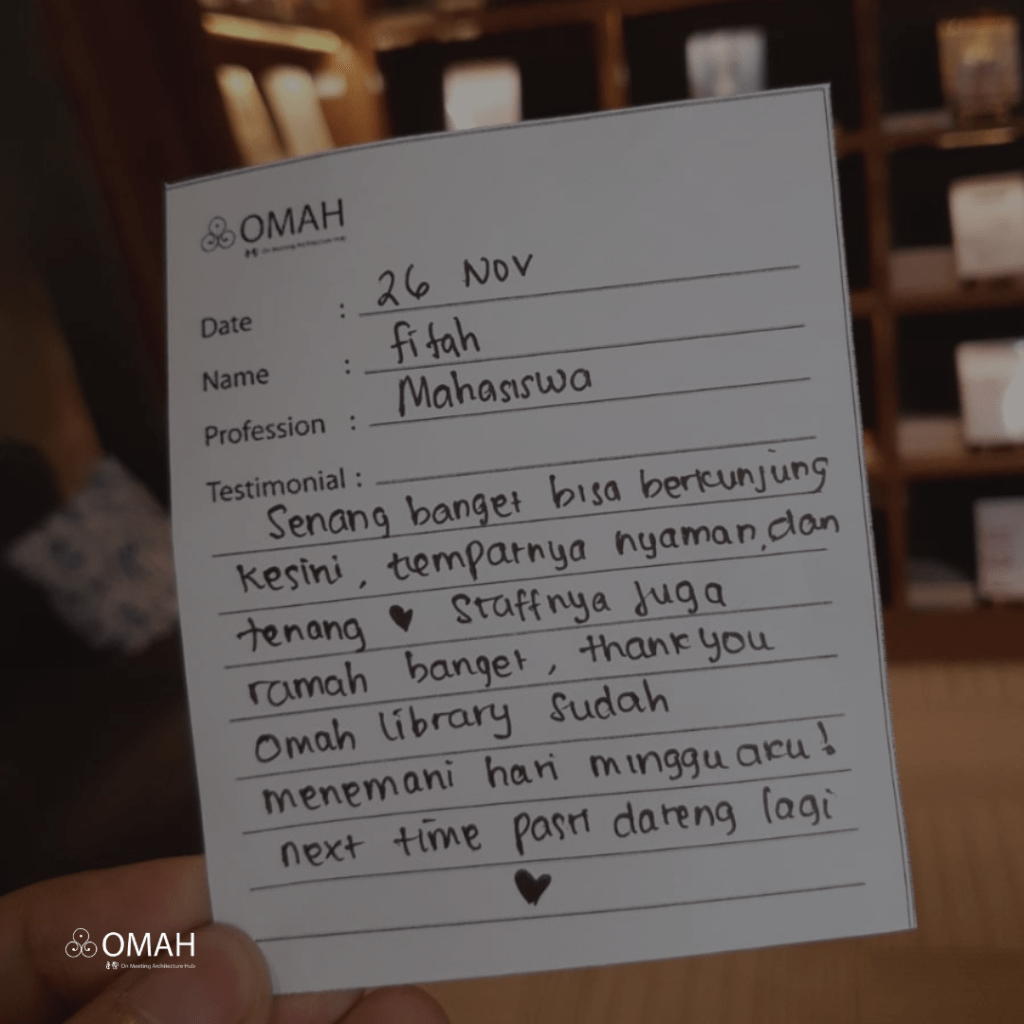 OMAH
On Meeting Architecture Hub
Date : 26 Nov
Name : fifah
Profession : Mahasiswa
Testimonial :
Senang banget bisa berkunjung
kesini, tempatnya nyaman, dan
tenang ♥ Staffnya juga
ramah banget, thank you
Omah library sudah
menemani hari minggu aku!
next time pasti dateng lagi
♥
OMAH
On Meeting Architecture Hub